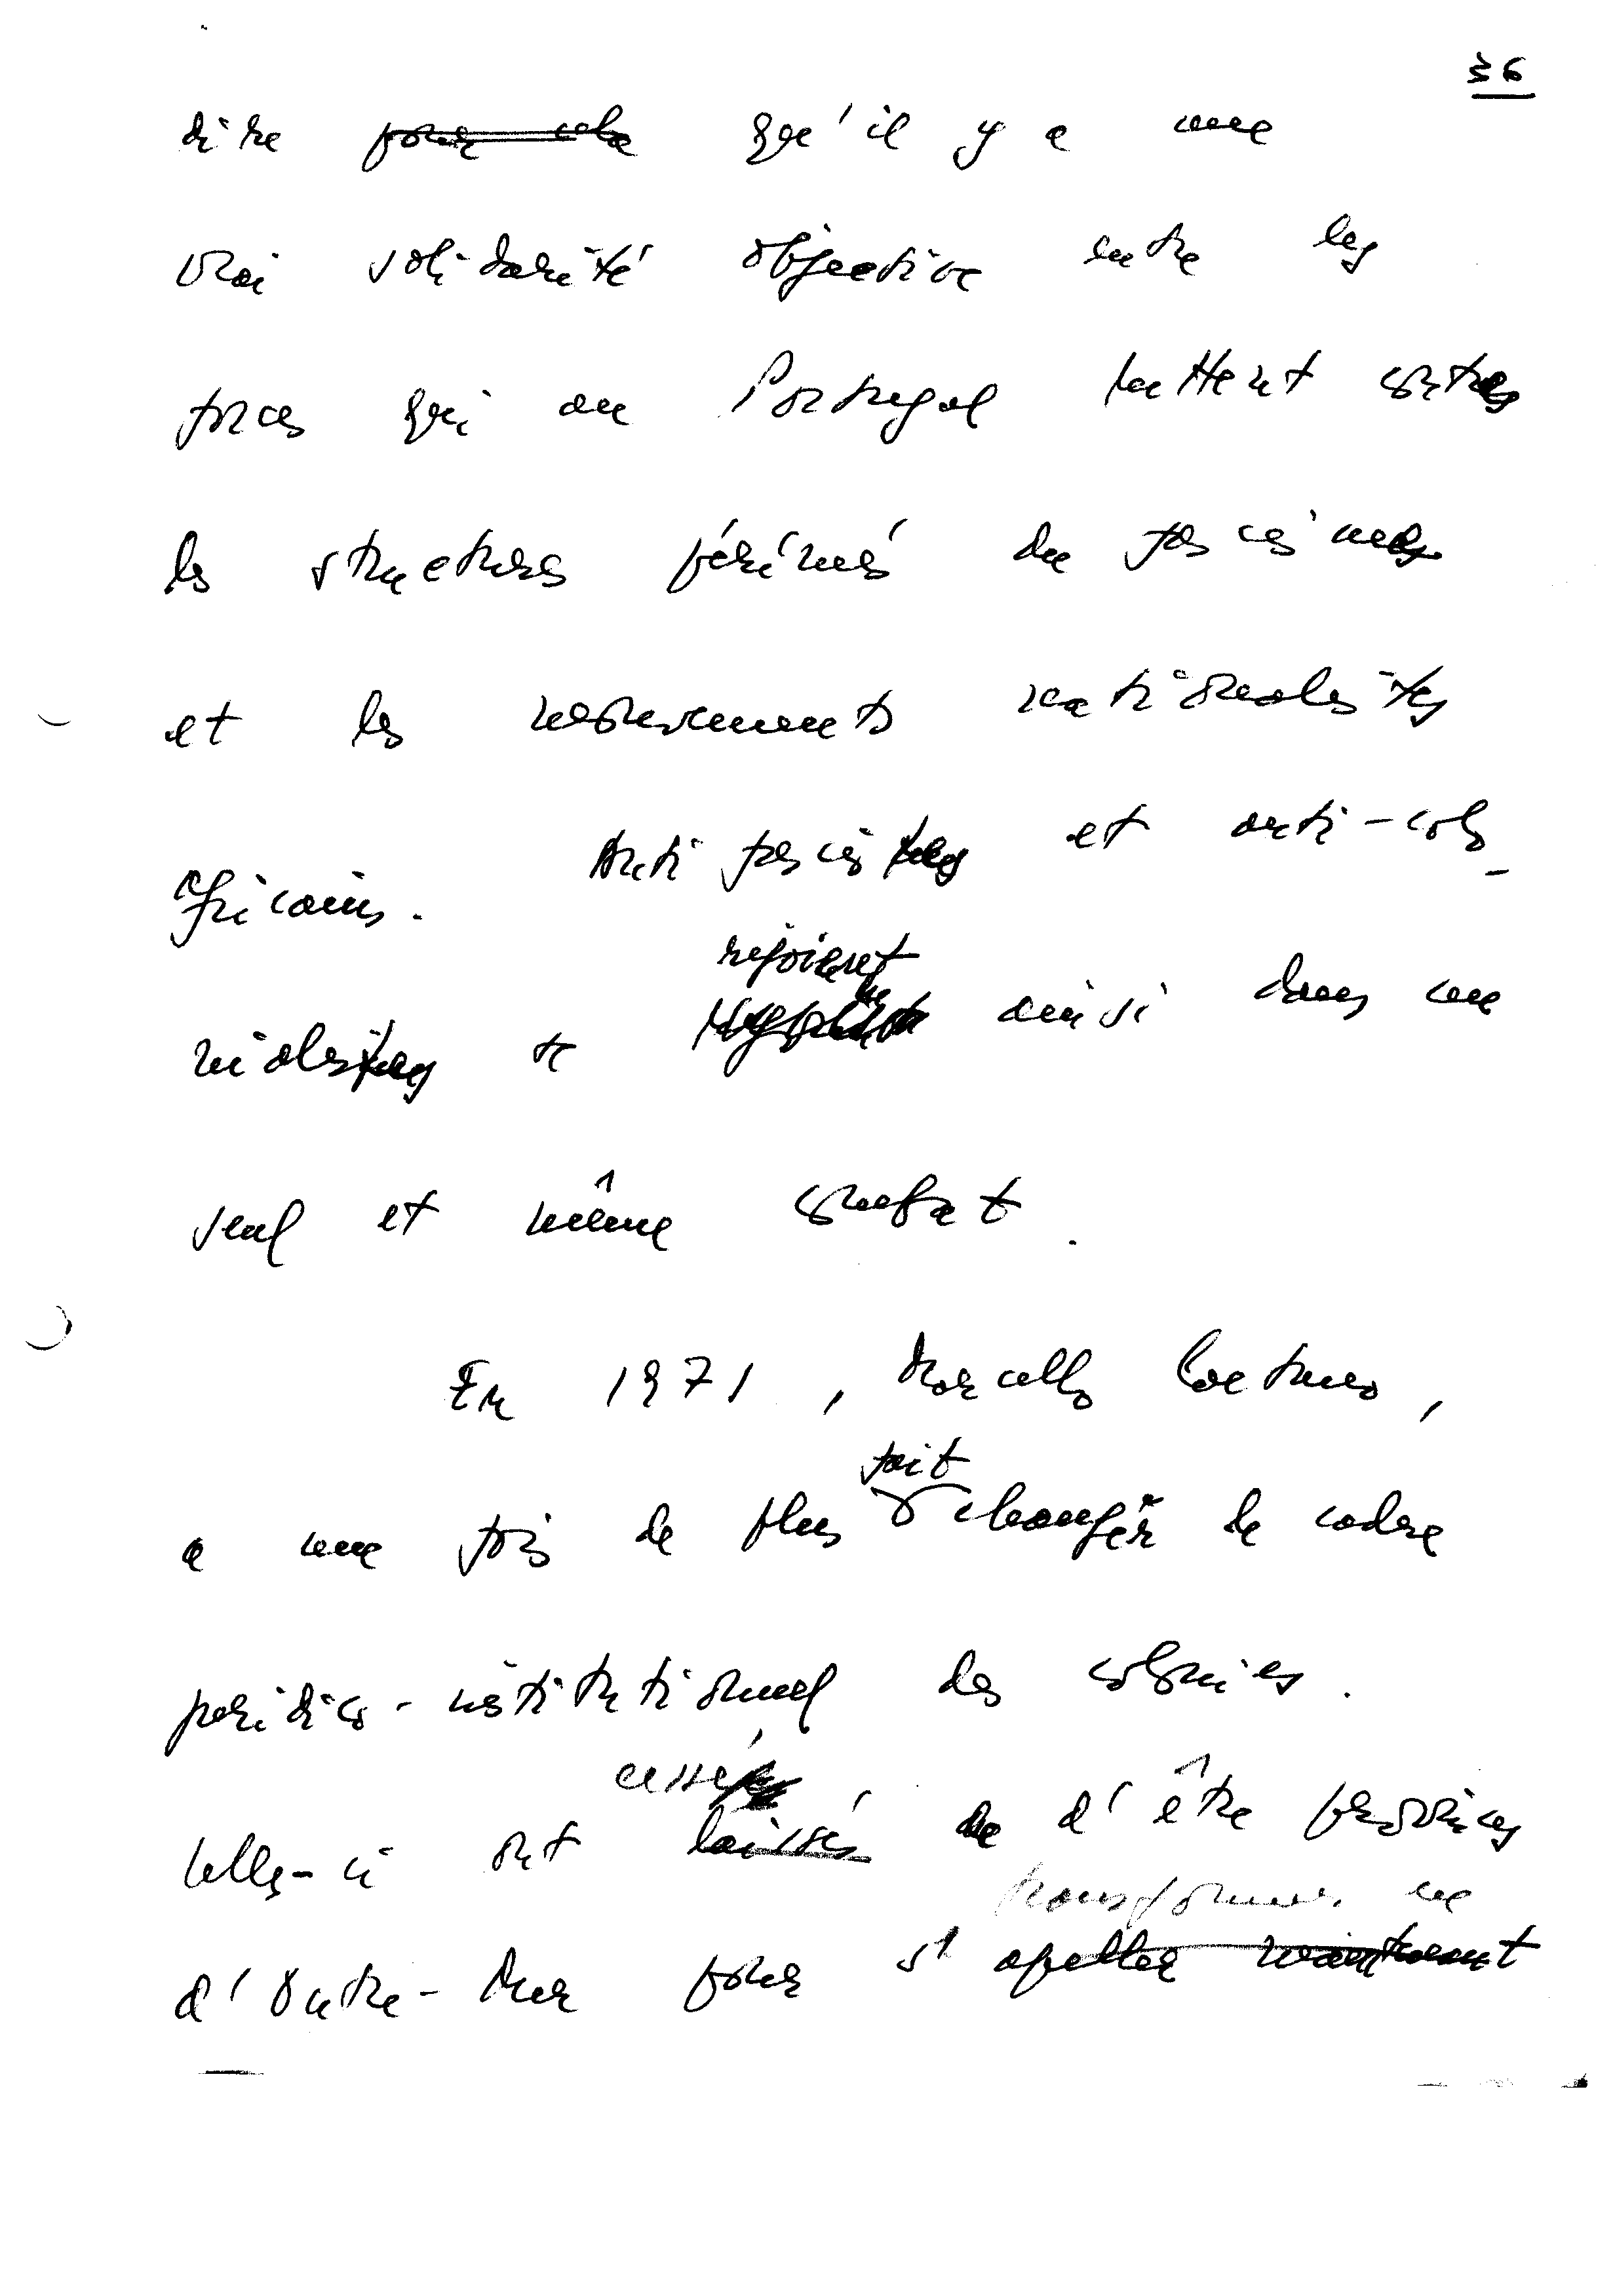 36
dire pour cela qu'il y a une
vrai solidarité objective entre les
forces qui au Portugal luttent contre
les structures périmés du fascisme
et les mouvements nationalistes
Africains. Antifascistes et anti-colo-
rejoignent
nialistes se ainsi dans un
seul et même combat.
En 1971, Marcello Caetano,
fait
a une fois de plus changer le cadre
juridico-institutionnel des colonies.
cessé
Celles-ci ont laissés de d'être provinces
transformer en
d'Outre-Mer pour s' apeller maintenant